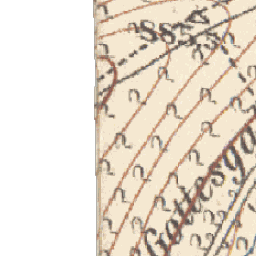 885.5
Gottesga